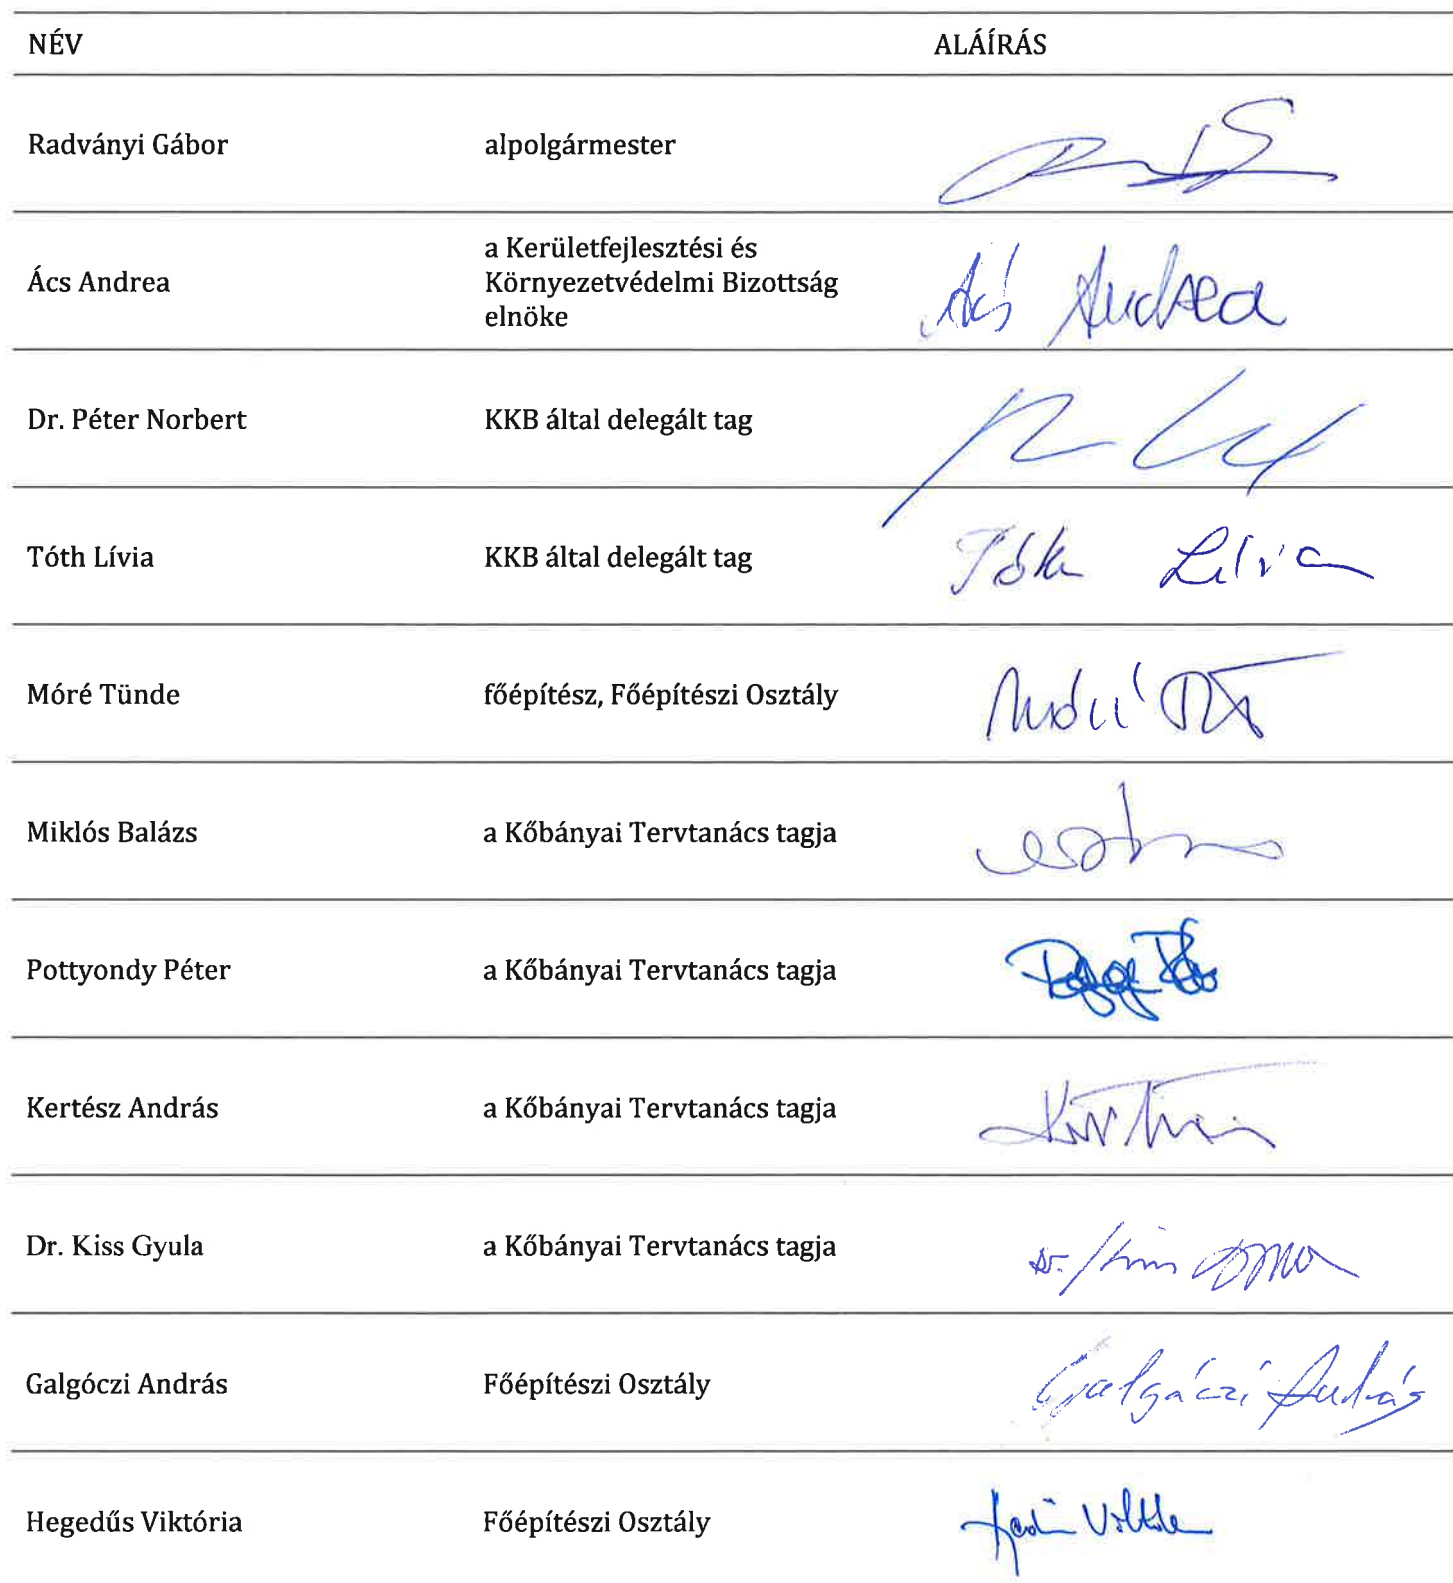 NÉV ALÁÍRÁS
Radványi Gábor alpolgármester
a Kerületfejlesztési és
Ács Andrea Környezetvédelmi Bizottság Ács Andrea
elnöke
Dr. Péter Norbert KKB által delegált tag
Tóth Lívia KKB által delegált tag Tóth Lívia
Móré Tünde főépítész, Főépítészi Osztály
Miklós Balázs a Kőbányai Tervtanács tagja
Pottyondy Péter a Kőbányai Tervtanács tagja
Kertész András a Kőbányai Tervtanács tagja
Dr. Kiss Gyula a Kőbányai Tervtanács tagja
Galgóczi András Főépítészi Osztály Galgóczi András
Hegedűs Viktória Főépítészi Osztály